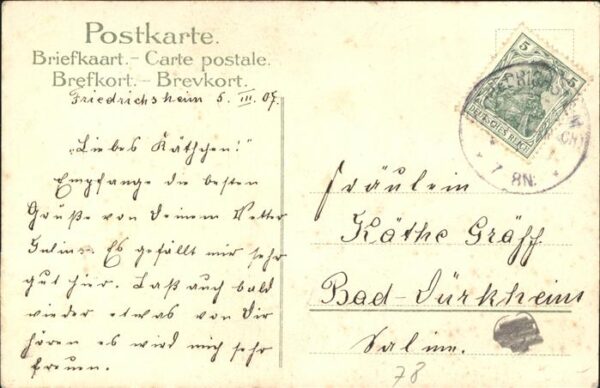 Postkarte.
Briefkaart. - Carte postale.
Brefkort. - Brevkort.
Friedrichsheim 5. III. 07.
„Liebes Käthchen!"
Empfange die besten
Grüße von Deinem Vetter
Julius. Es gefällt mir sehr
gut hier. Laß auch bald
wieder etwas von Dir
hören es wird mich sehr
freuen.
5
5
DEUTSCHES REICH
7-8N.
Fräulein
Käthe Gräff
Bad-Dürkheim
Saline.
78